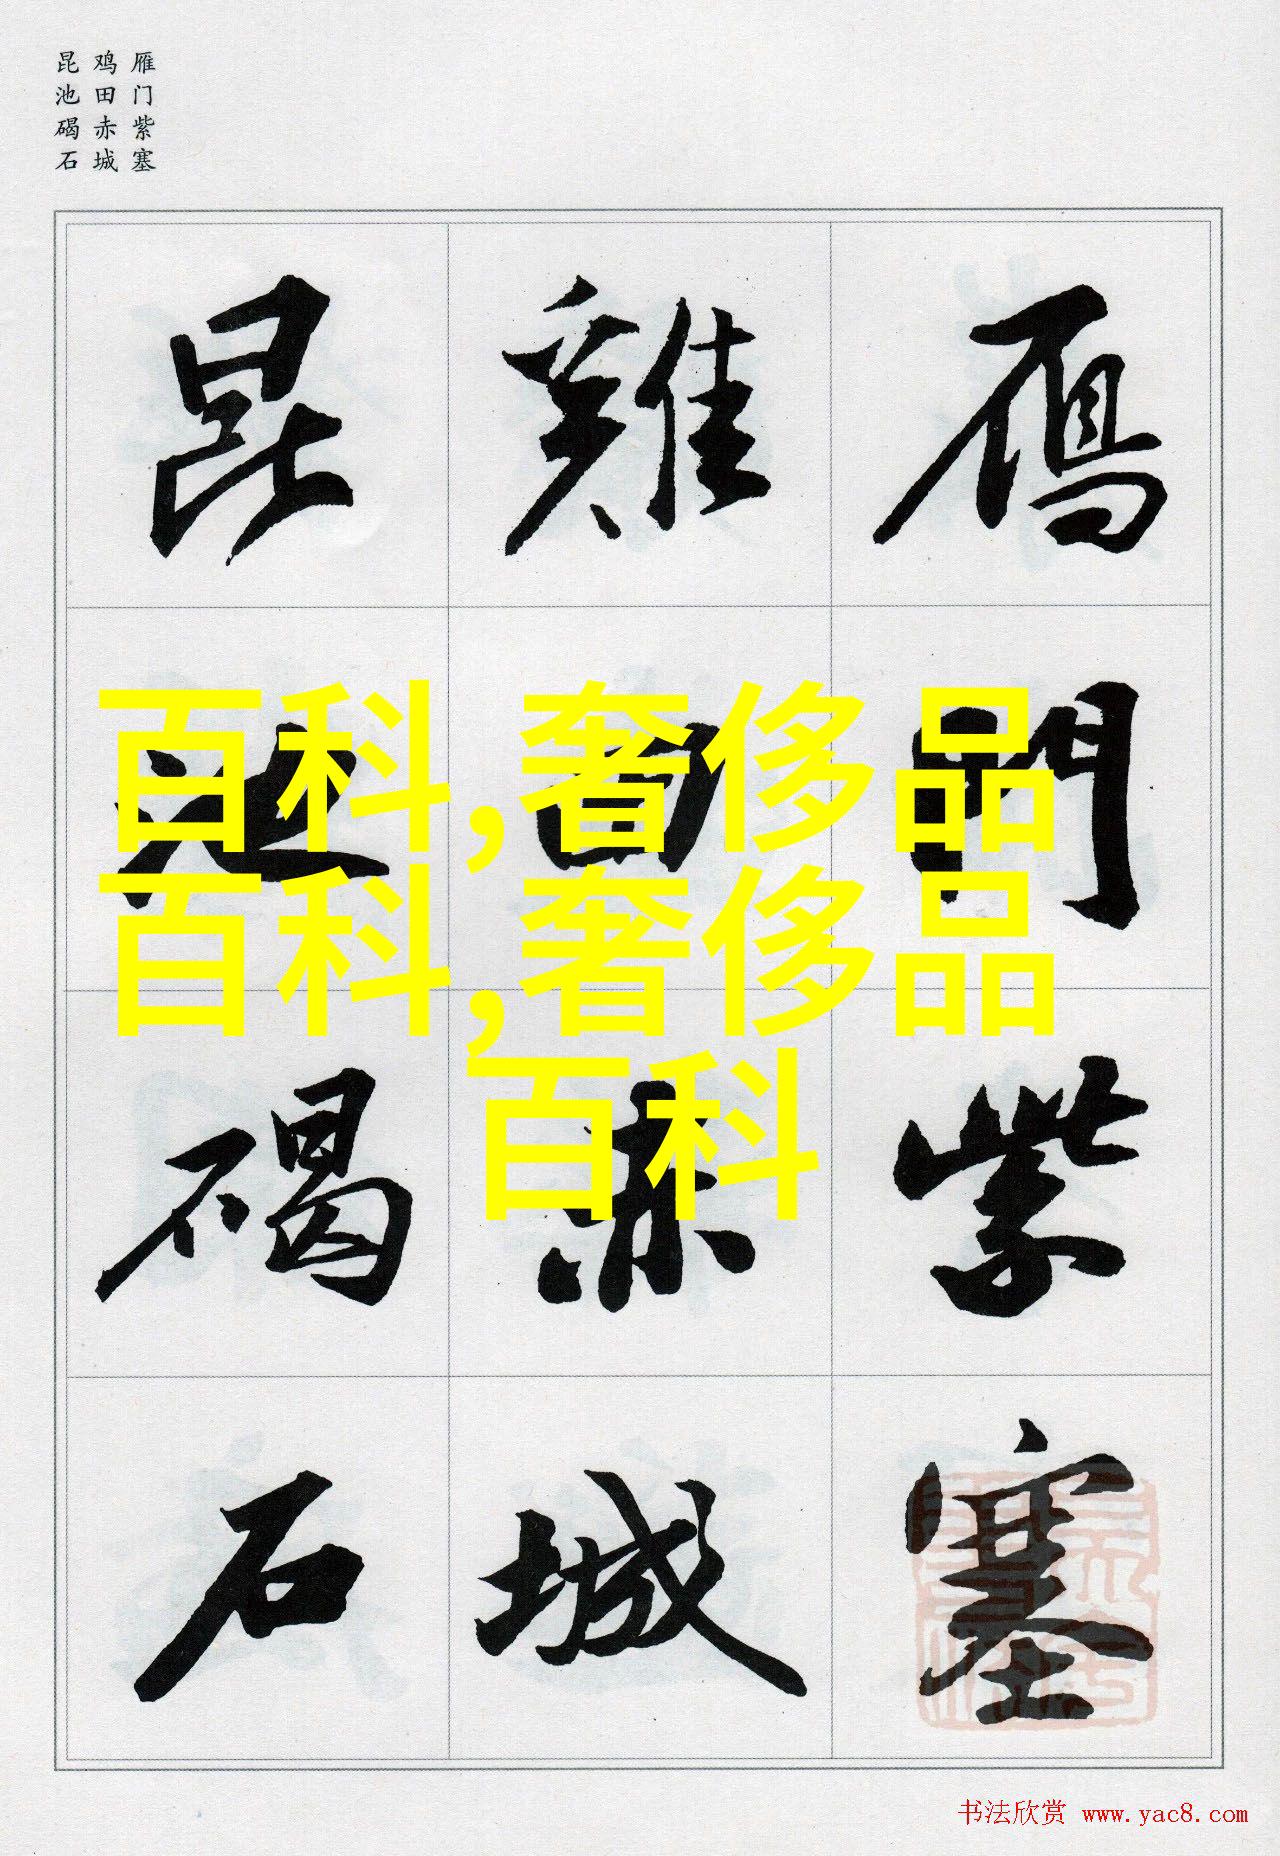 雁门紫塞
鸡田赤城
昆池碣石
雁門紫塞
雞田赤城
昆池碣石
百科,奢侈品
百科,奢侈品
百科
书法欣赏 www.yac8.com